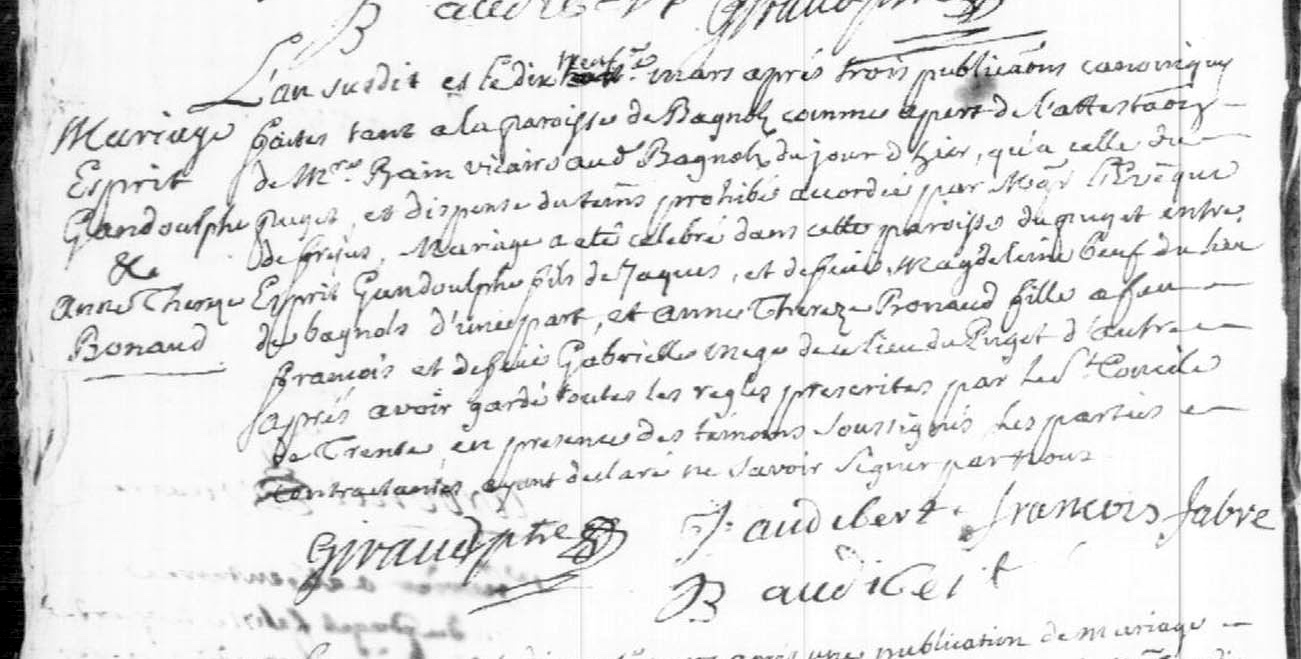 B audibert Giraud ptre
L'an susdit et le dix neuf.e mars aprés trois publicaõns canoniques
Mariage
Esprit
Gandoulphe
&
Anne Thereze
Bonaud
faites tant a la paroisse de Bagnols comme apert de l'attestaõn
de M.re Rain vicaire aud. Bagnols du jour d'hier, qu'a celle du
puget, et dispense du tems prohibé accordée par Mgr L'Evêque
de frejus, Mariage a eté celebré dans cette paroisse du puget entre
Esprit Gandoulphe fils de Jaques, et de feüe Magdeleine beuf du lieu
de bagnols d'une part, et anne Thereze Bonaud fille a feu
francois et de feüe Gabrielle mege de ce lieu du Puget d'autre
aprés avoir gardé toutes les regles prescrites par le S.t Concile
de Trente en presence des témoins soussignés les parties
contractantes, ayant declaré ne savoir signer par nous
Giraud ptre J. audibert. françois fabre
B audibert
aprés une publication de mariage